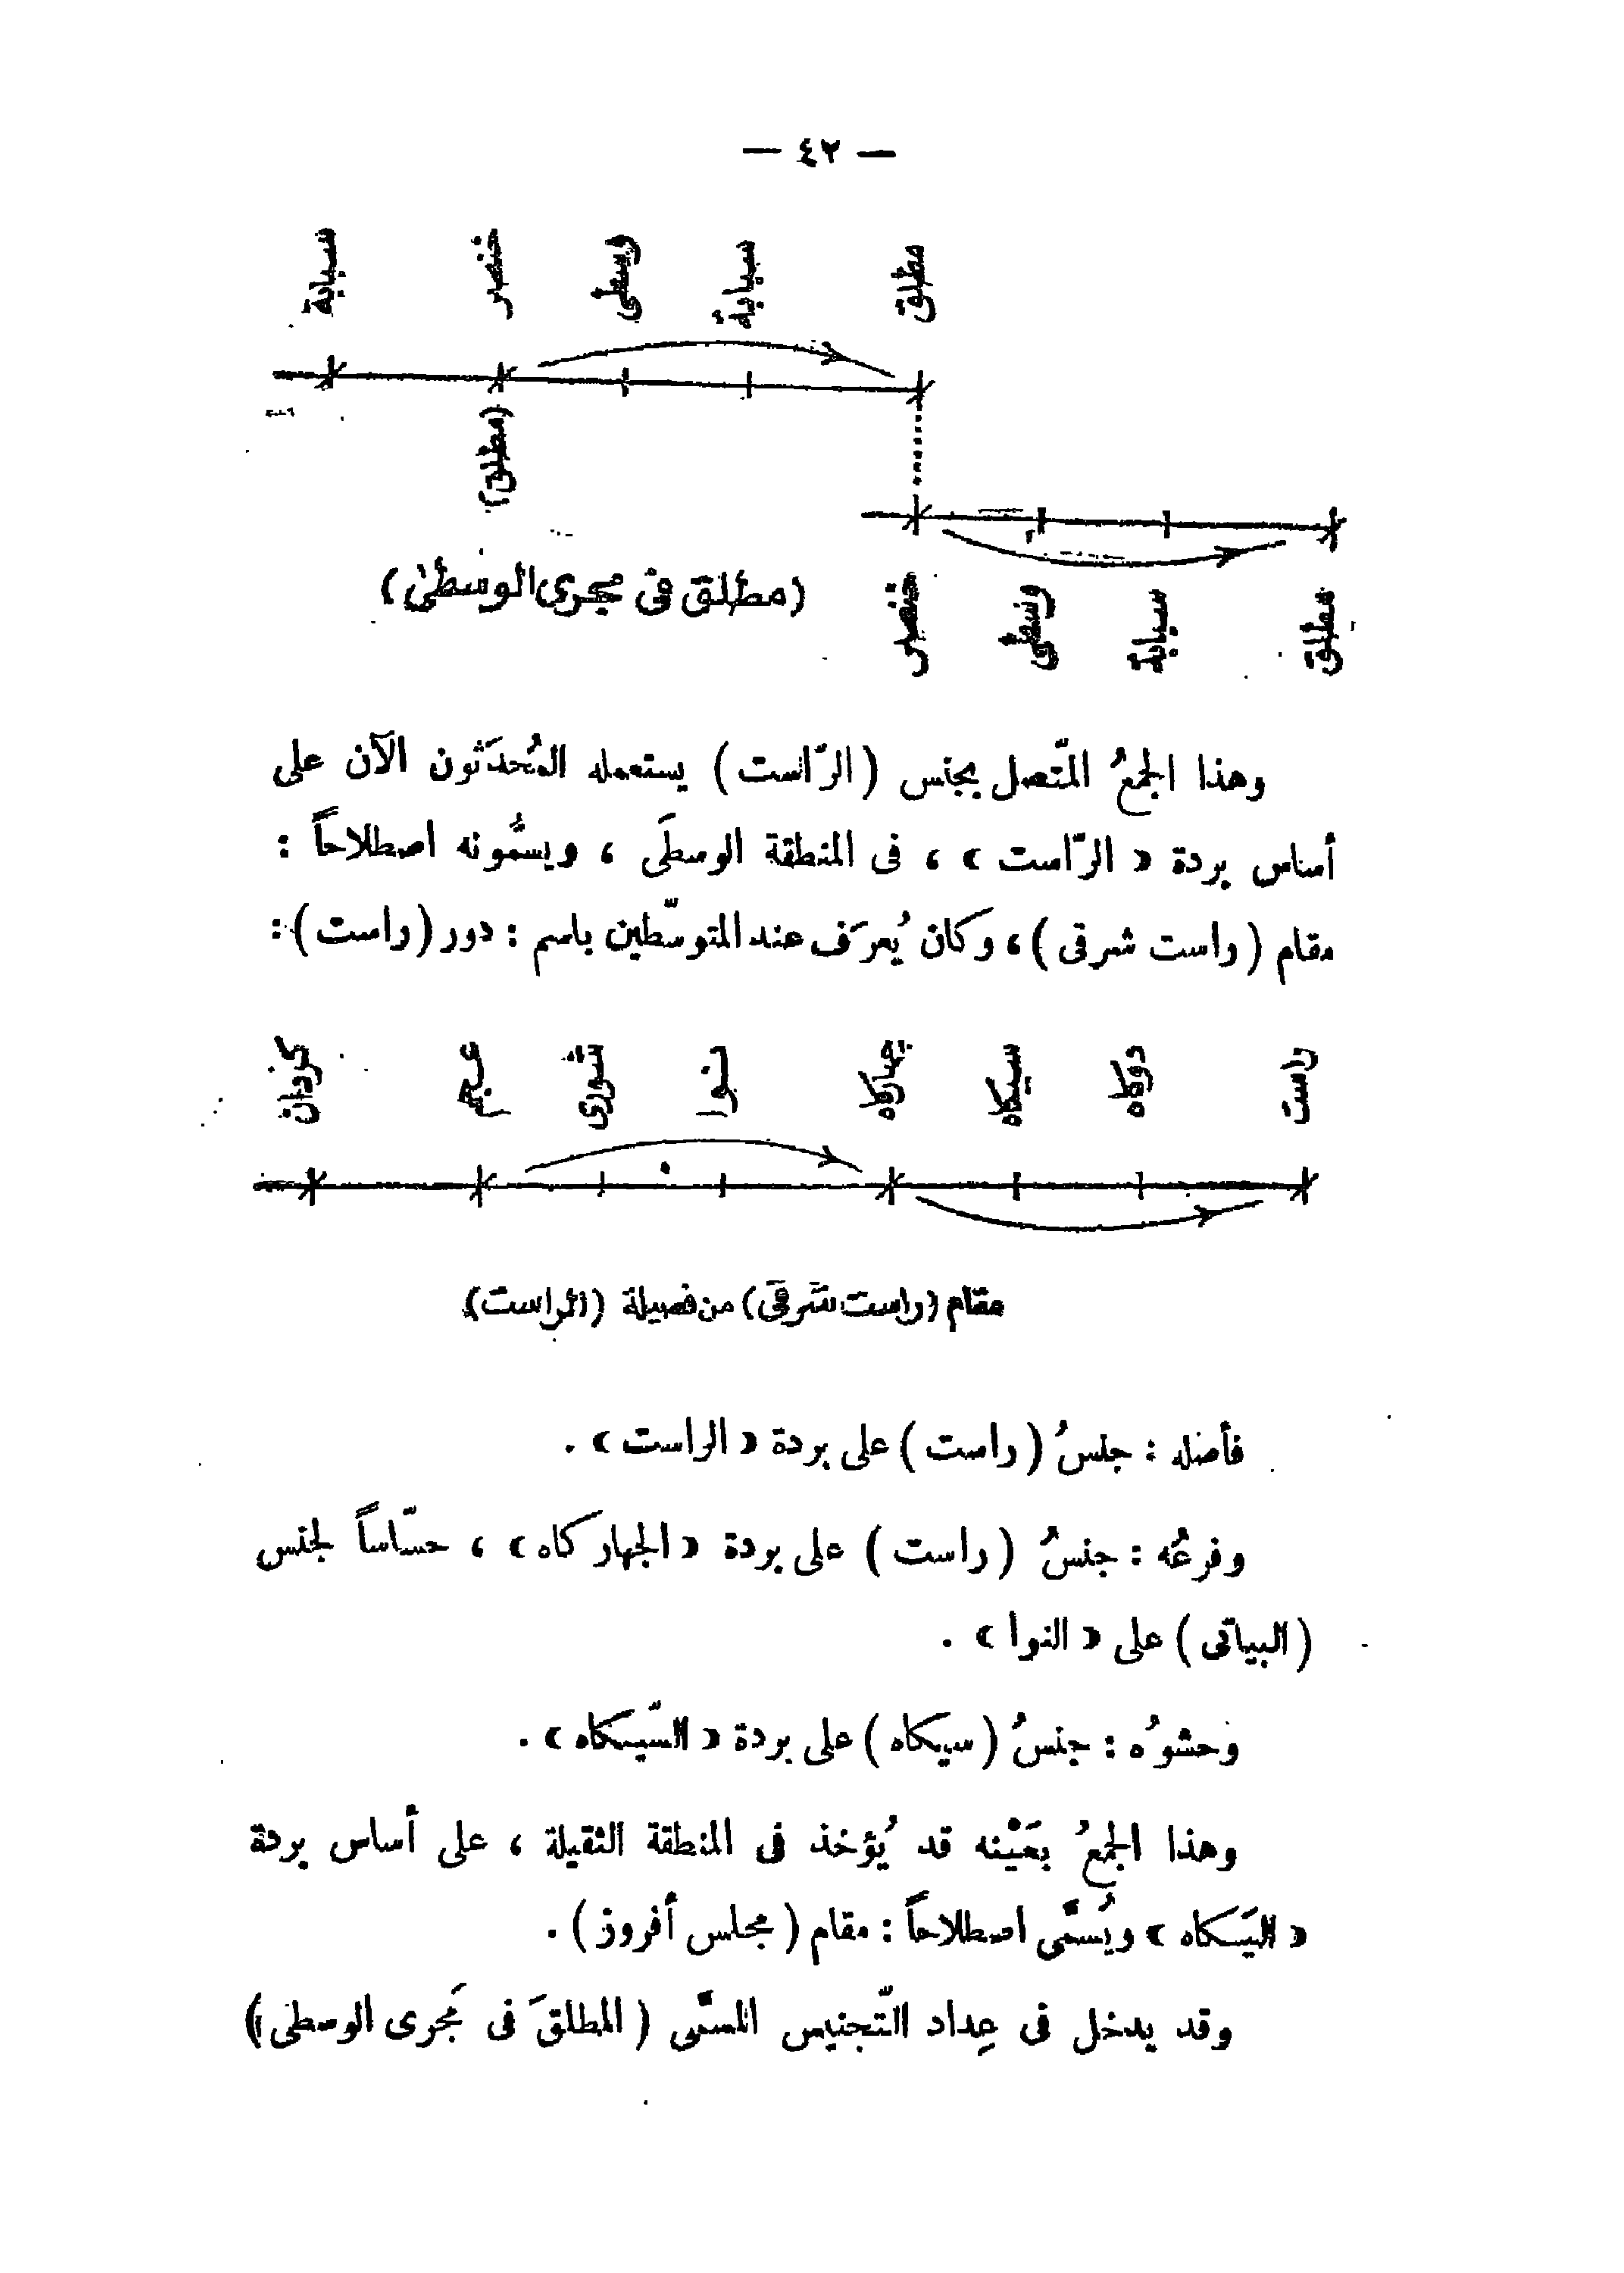 — ٤٢ —
مطلق سبابة وسطى خنصر سبابة
(مطلق)
(مطلق فى مجرى الوسطى)
مطلق سبابة وسطى خنصر
وهذا الجمعُ المتّصل بجنس (الرّاست) يستعمله المُحدَثون الآن على
أساس بردة «الرّاست» ، فى المنطقة الوسطَى ، ويسمُّونه اصطلاحاً :
مقام (راست شرقى) ، وكان يُعرَف عند المتوسّطين باسم : دور (راست) :
راست دوكاه سيكاه چهاركاه نوا شورى عجم كردان
مقام (راست شرقى) من فصيلة (الراست)
فأصله : جنسُ (راست) على بردة «الراست» .
وفرعُه : جنسُ (راست) على بردة «الجهاركاه» ، حسّاساً لجنس
(البياتى) على «النوا» .
وحشوُه : جنسُ (سيكاه) على بردة «السّيكاه» .
وهذا الجمعُ بعَيْنه قد يُؤخذ فى المنطقة الثقيلة ، على أساس بردة
«اليَكاه» ويُسمَّى اصطلاحاً : مقام (مجلس أفروز) .
وقد يدخل فى عِداد التّجنيس المسمَّى (المطلقَ فى مَجرى الوسطى)